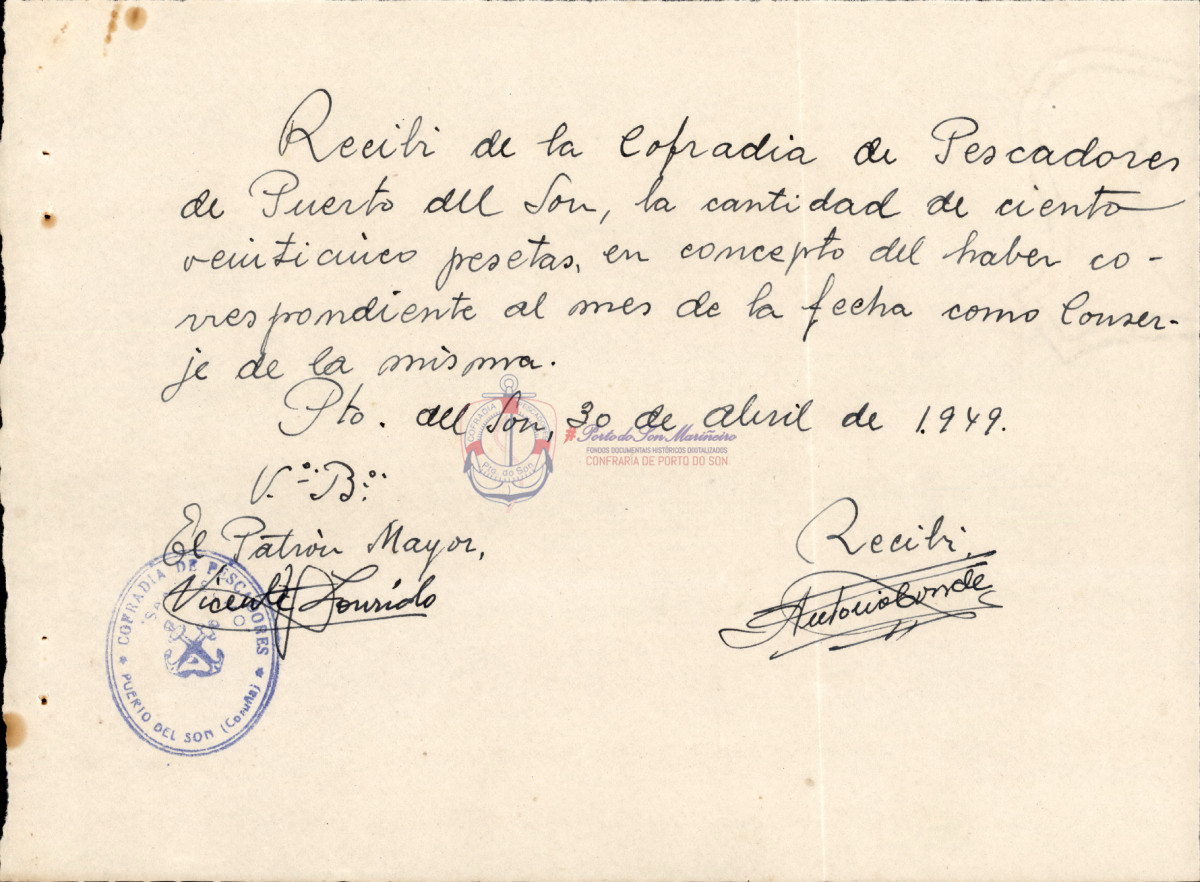 Recibi de la Cofradia de Pescadores
de Puerto del Son, la cantidad de ciento
veinticinco pesetas, en concepto del haber co-
rrespondiente al mes de la fecha como Conser-
je de la misma.
Pto. del Son, 30 de abril de 1.949.
COFRADIA PESCADORES
Pto. do Son
#Porto do Son Mariñeiro
FONDOS DOCUMENTAIS HISTÓRICOS DIXITALIZADOS
CONFRARÍA DE PORTO DO SON
V.º B.º
El Patrón Mayor,
Vicente Lourido
Recibi.
Antonio Conde
COFRADIA DE PESCADORES
PUERTO DEL SON (Coruña)